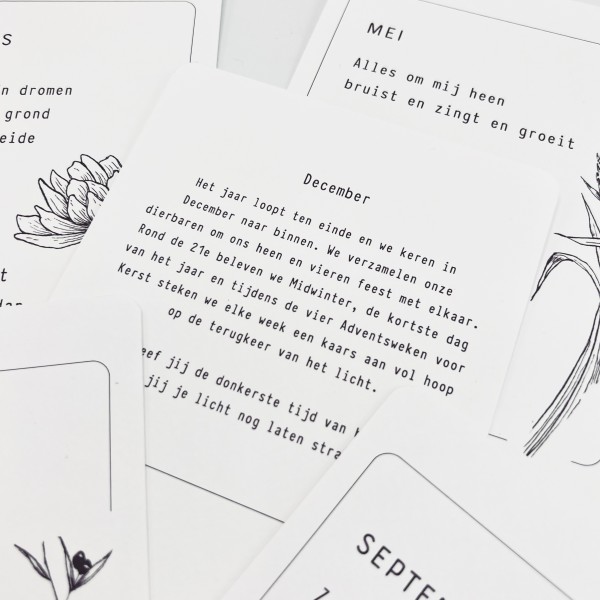 S
n dromen
grond
eide
t
MEI
Alles om mij heen
bruist en zingt en groeit
December
Het jaar loopt ten einde en we keren in
December naar binnen. We verzamelen onze
dierbaren om ons heen en vieren feest met elkaar.
Rond de 21e beleven we Midwinter, de kortste dag
van het jaar en tijdens de vier Adventsweken voor
Kerst steken we elke week een kaars aan vol hoop
op de terugkeer van het licht.
eef jij de donkerste tijd van
jij je licht nog laten stra
SEPTE